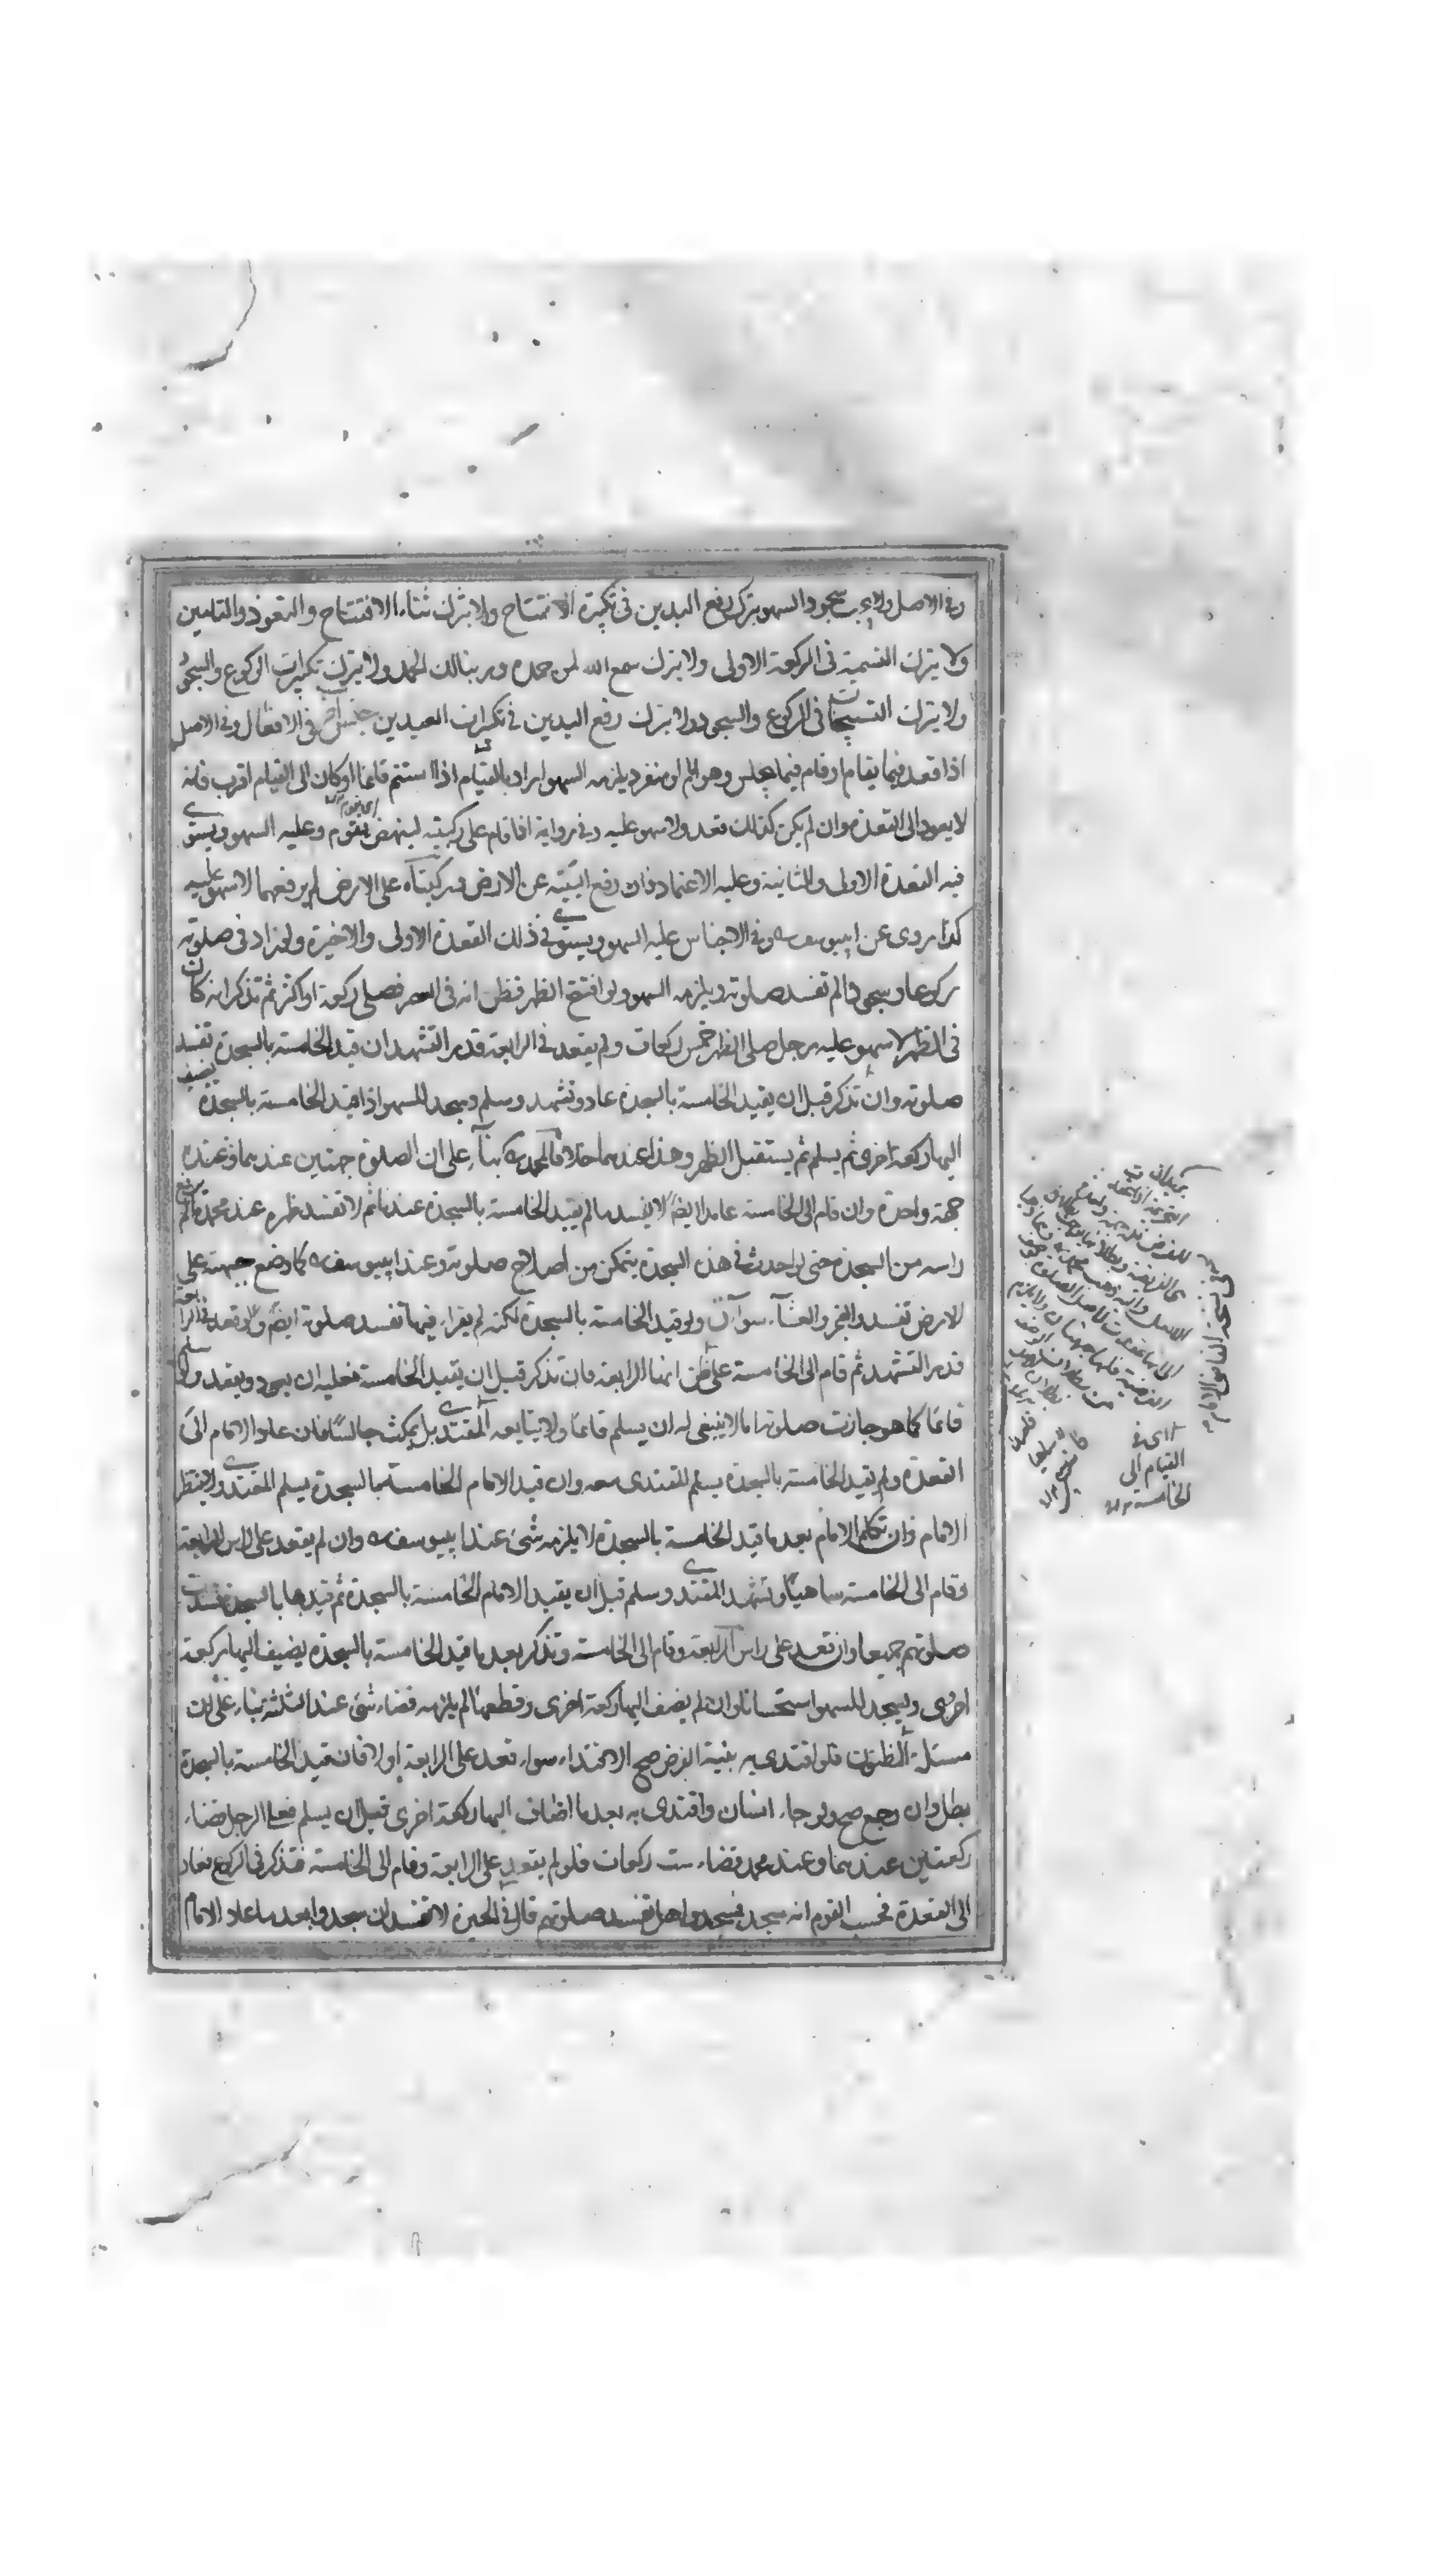 وفى الاصل ولا يجب سجود السهو بترك رفع اليدين فى تكبيرة الافتتاح ولا بترك ثناء الافتتاح والتعوذ والتامين
ولا بترك التسمية فى الركعة الاولى ولا بترك سمع الله لمن حمده وربنا لك الحمد ولا بترك تكبيرات الركوع والسجود
ولا بترك التسبيحات فى الركوع والسجود ولا بترك رفع اليدين فى تكبرات العيدين جنس اخر فى الافعال وفى الاصل
اذا قعد فيما يقام او قام فيما يجلس وهو امام او منفرد يلزمه السهو اراد بالقيام اذا استتم قائما او كان الى القيام اقرب فانه
لا يعود الى القعدة وان لم يكن كذلك قعد ولا سهو عليه وفى رواية اذا قام على ركبتيه لينهض يقوم وعليه السهو ويستوى
فيه القعدة الاولى والثانية وعليه الاعتماد وان رفع اليتيه عن الارض وركبتاه على الارض لم يرفعهما لا سهو عليه
كذا روى عن ابيوسف وفى الاجناس عليه السهو ويستوى فى ذلك القعدة الاولى والاخيرة ولو زاد فى صلوته
ركوعا او سجودا لم تفسد صلوته ويلزمه السهو ولو افتتح الظهر فظن انه فى العصر فصلى ركعة او اكثر ثم تذكر انه كان
فى الظهر لا سهو عليه رجل صلى الظهر خمس ركعات ولم يقعد فى الرابعة قدر التشهد ان قيد الخامسة بالسجدة تفسد
صلوته وان تذكر قبل ان يقيد الخامسة بالسجدة عاد وتشهد وسلم وسجد للسهو اذا قيد الخامسة بالسجدة يضيف
اليها ركعة اخرى ثم يسلم ثم يستقبل الظهر وهذا عندهما خلافا لمحمد بناء على ان الصلوة جهتين عندهما وعنده
جهة واحدة وان قام الى الخامسة عامدا ايضا لا يفسد ما لم يقيد الخامسة بالسجدة عندنا ثم لا تفسد ظهره عند محمد ما لم يرفع
راسه من السجدة حتى لو احدث فى هذه السجدة يتمكن من اصلاح صلوته وعند ابيوسف كما وضع جبهته على
الارض تفسد والفجر والعشاء سواء ولو قيد الخامسة بالسجدة لكنه لم يقرأ فيها تفسد صلوته ايضا ولو قعد فى الرابعة
قدر التشهد ثم قام الى الخامسة على ظن انها الرابعة فان تذكر قبل ان يقيد الخامسة فعليه ان يعود ويقعد ولو سلم
قائما كما هو جازت صلوته اما لا ينبغى له ان يسلم قائما ولا يتابعه المقتدى بل يمكث جالسا فان عاد الامام الى
القعدة ولم يقيد الخامسة بالسجدة يسلم المقتدى معه وان قيد الامام الخامسة بالسجدة يسلم المقتدى ولا ينتظر
الامام وان تكلم الامام بعد ما قيد الخامسة بالسجدة لا يلزمه شئ عند ابيوسف وان لم يقعد على راس الرابعة
وقام الى الخامسة ساهيا وتشهد المقتدى وسلم قبل ان يقيد الامام الخامسة بالسجدة ثم قيدها بالسجدة فسدت
صلوتهم جميعا وان قعد على راس الرابعة وقام الى الخامسة وتذكر بعد ما قيد الخامسة بالسجدة يضيف اليها ركعة
اخرى ويسجد للسهو استحسانا وان لم يضف اليها ركعة اخرى وقطعها لم يلزمه قضاء شئ عند الثلثة بناء على ان
مسئلة المظنون فلو اقتدى به بنية الفرض صح الاقتداء سواء قعد على الرابعة او لا فان قيد الخامسة بالسجدة
بطل وان رجع صح ولو جاء انسان واقتدى به بعد ما اضاف اليها ركعة اخرى قبل ان يسلم فعلى الرجل قضاء
ركعتين عندهما وعند محمد قضاء ست ركعات فلو لم يقعد على الرابعة وقام الى الخامسة فتذكر فى الركوع فعاد
الى القعدة فحسب القوم انه سجد فسجدوا هل تفسد صلوتهم قال فى الحيرة لا تفسد ان سجدوا بعد ما عاد الامام
اى فى
القيام الى
الخامسة